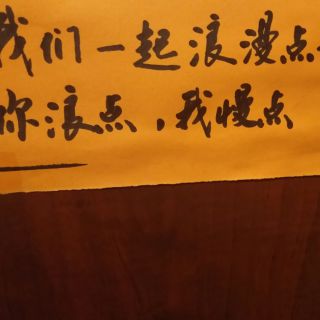 我们一起浪漫点
你浪点，我慢点